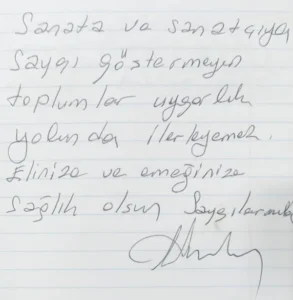 Sanata ve sanatçıya
Saygı göstermeyen
toplumlar uygarlık
yolunda ilerleyemez.
Elinize ve emeğinize
sağlık olsun Saygılarımla